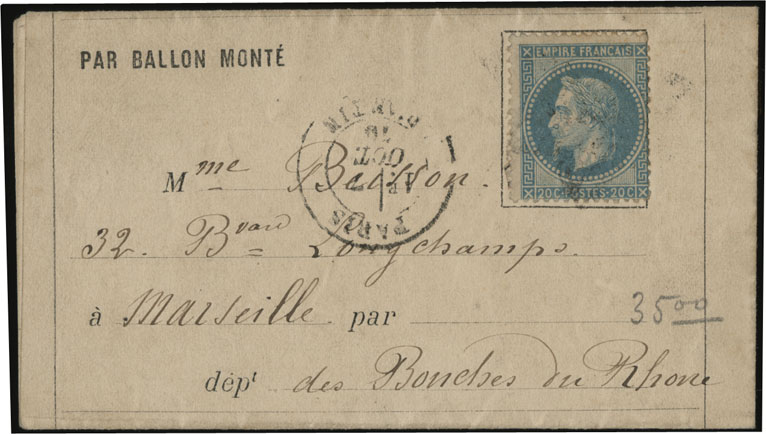 PAR BALLON MONTÉ
EMPIRE FRANÇAIS
20C-POSTES-20C
10
OCT
PARIS
Mme
32. Bvard Longchamps.
à Marseille par
3500
dépt des Bouches du Rhone